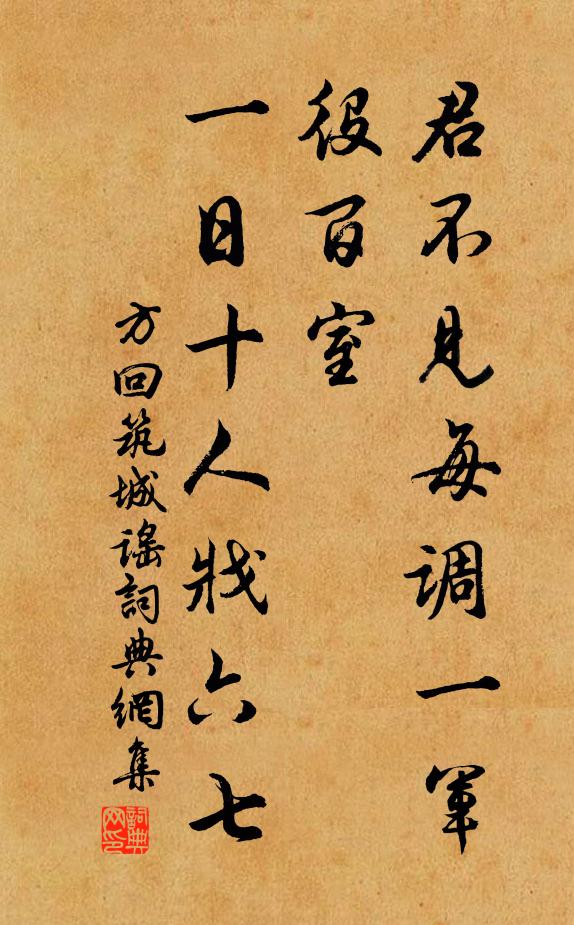 君不见每调一军
役百室
一日十人戕六七
方回筑城谣詞典網集
詞典网印